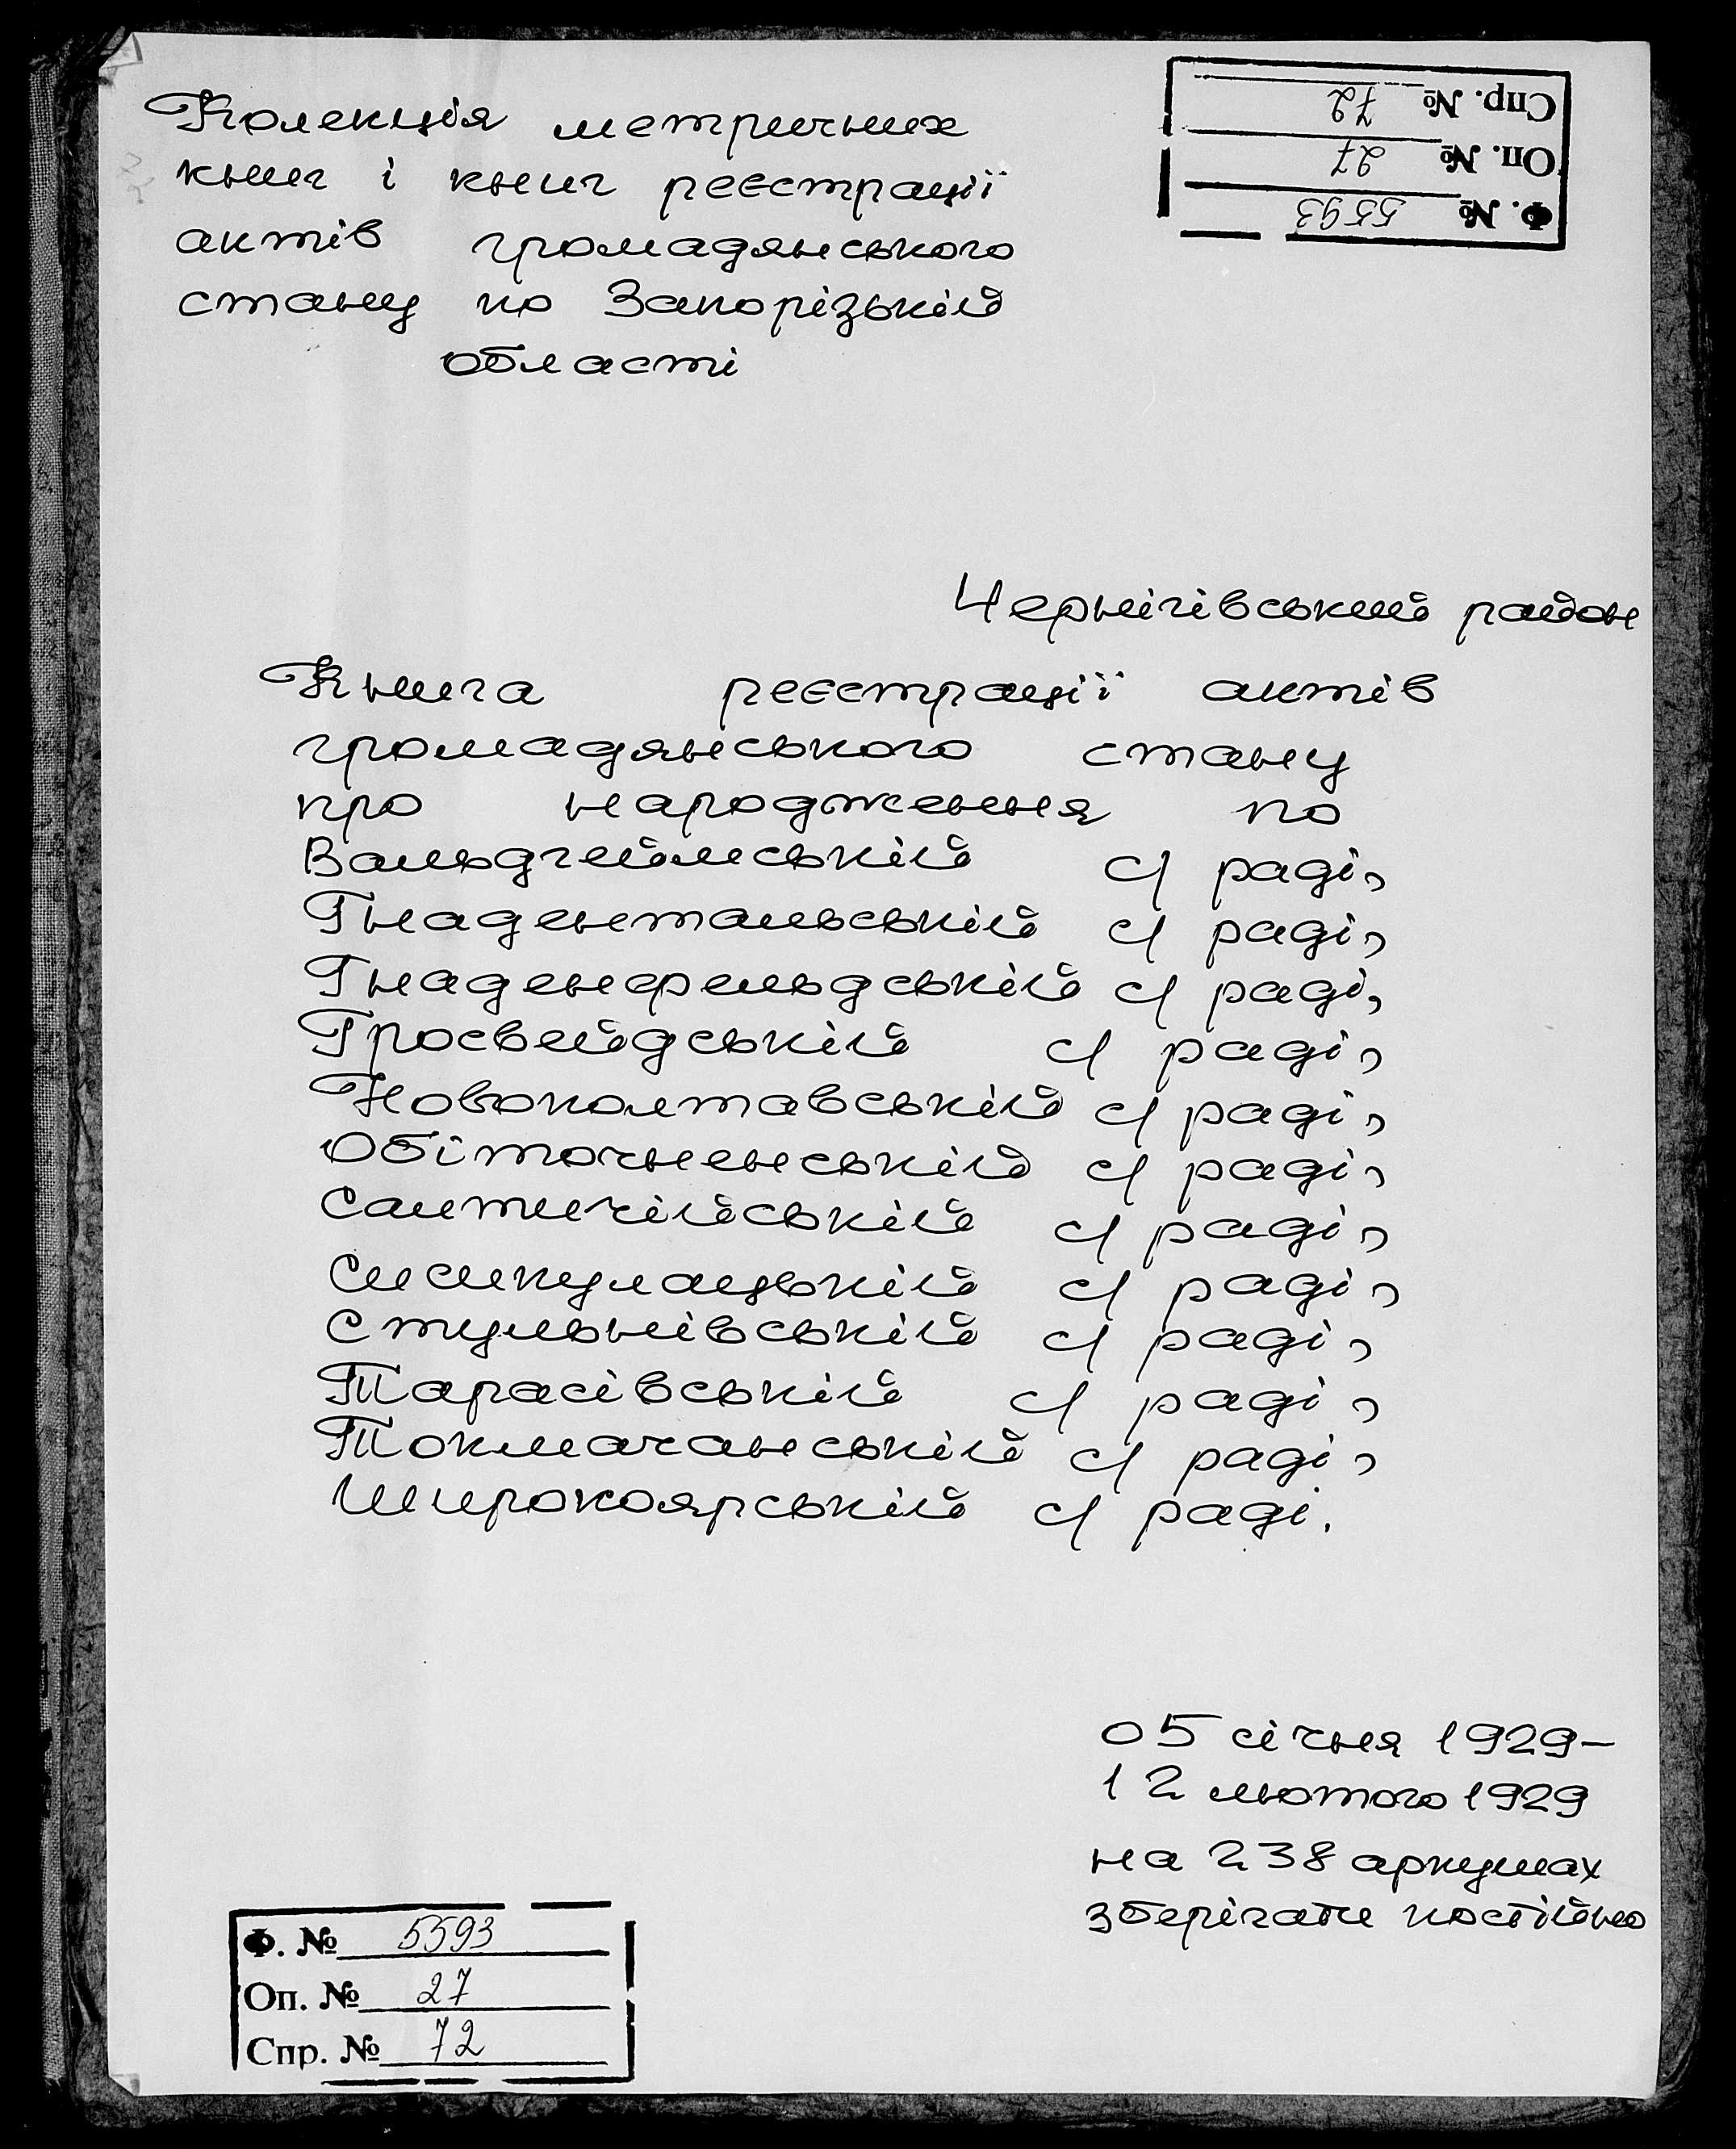 Колекція метричних
книг і книг реєстрації
актів громадянського
стану по Запорізькій
області
Спр. № 72
Оп. № 27
Ф. № 5593
Чернігівський район
Книга реєстрації актів
громадянського стану
про народження по
Вальдгеймській с/ раді,
Гнадентальській с/ раді,
Гнаденфельдській с/ раді,
Гросвейдській с/ раді,
Новополтавській с/ раді,
Обіточненській с/ раді,
Салтичійській с/ раді,
Сисикулацькій с/ раді,
Стульнівській с/ раді,
Тарасівській с/ раді,
Токмачанській с/ раді,
Широкоярській с/ раді.
05 січня 1929-
12 лютого 1929
на 238 аркушах
зберігати постійно
Ф. № 5593
Оп. № 27
Спр. № 72